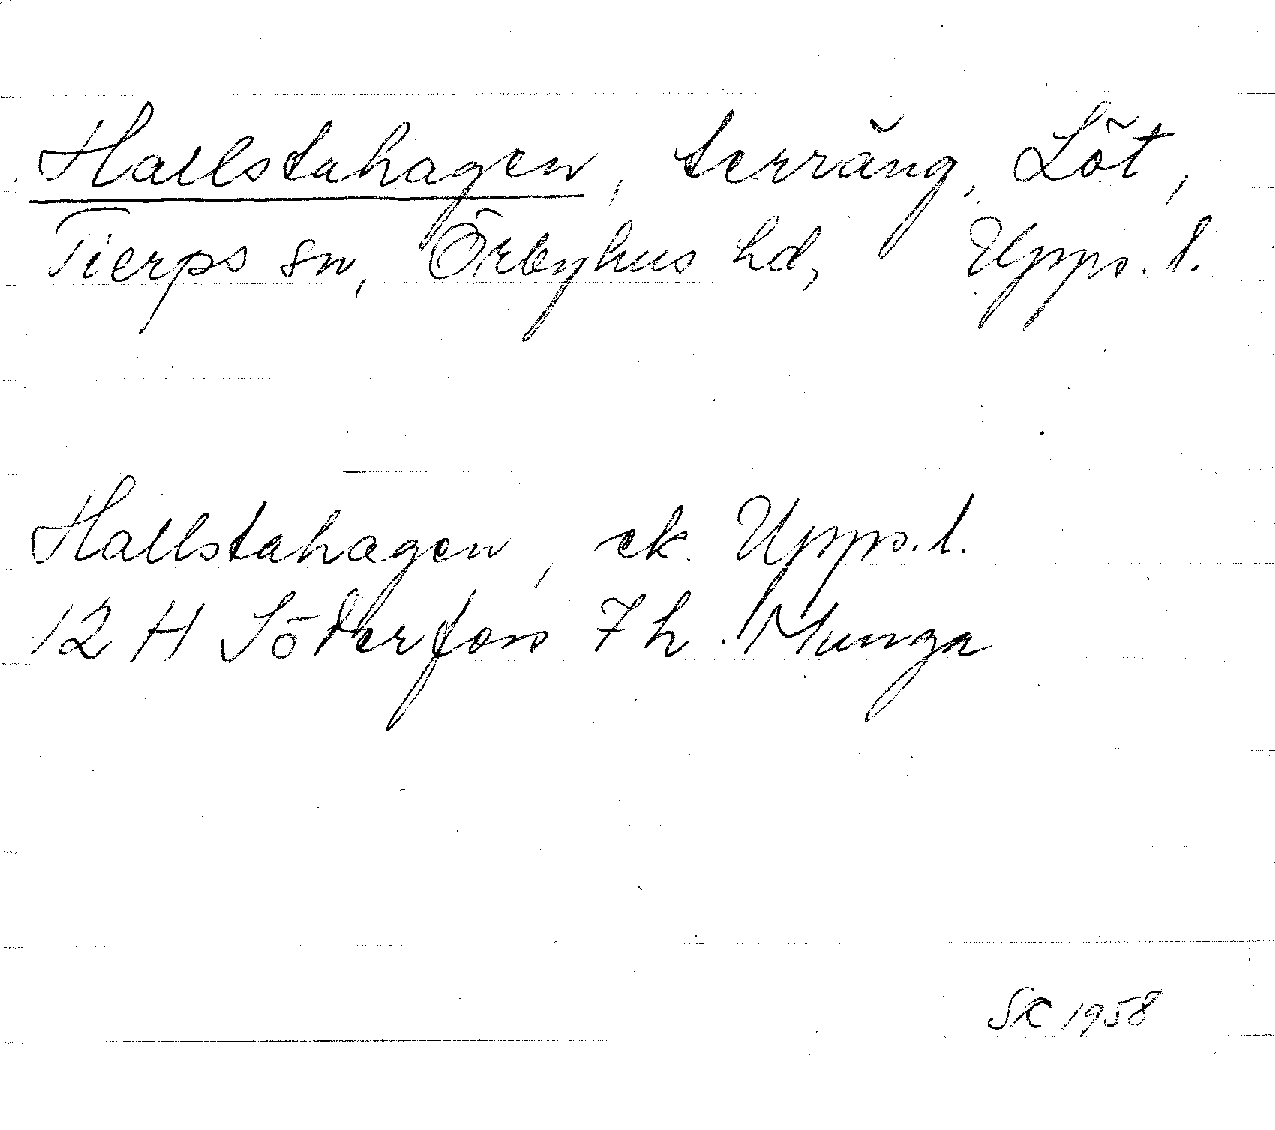 Hallstahagen, terräng, Löt,
Tierps sn, Örbyhus hd, Upps. l.
Hallstahagen, ek. Upps. l.
12 H Söderfors 7 h Munga
SK 1958